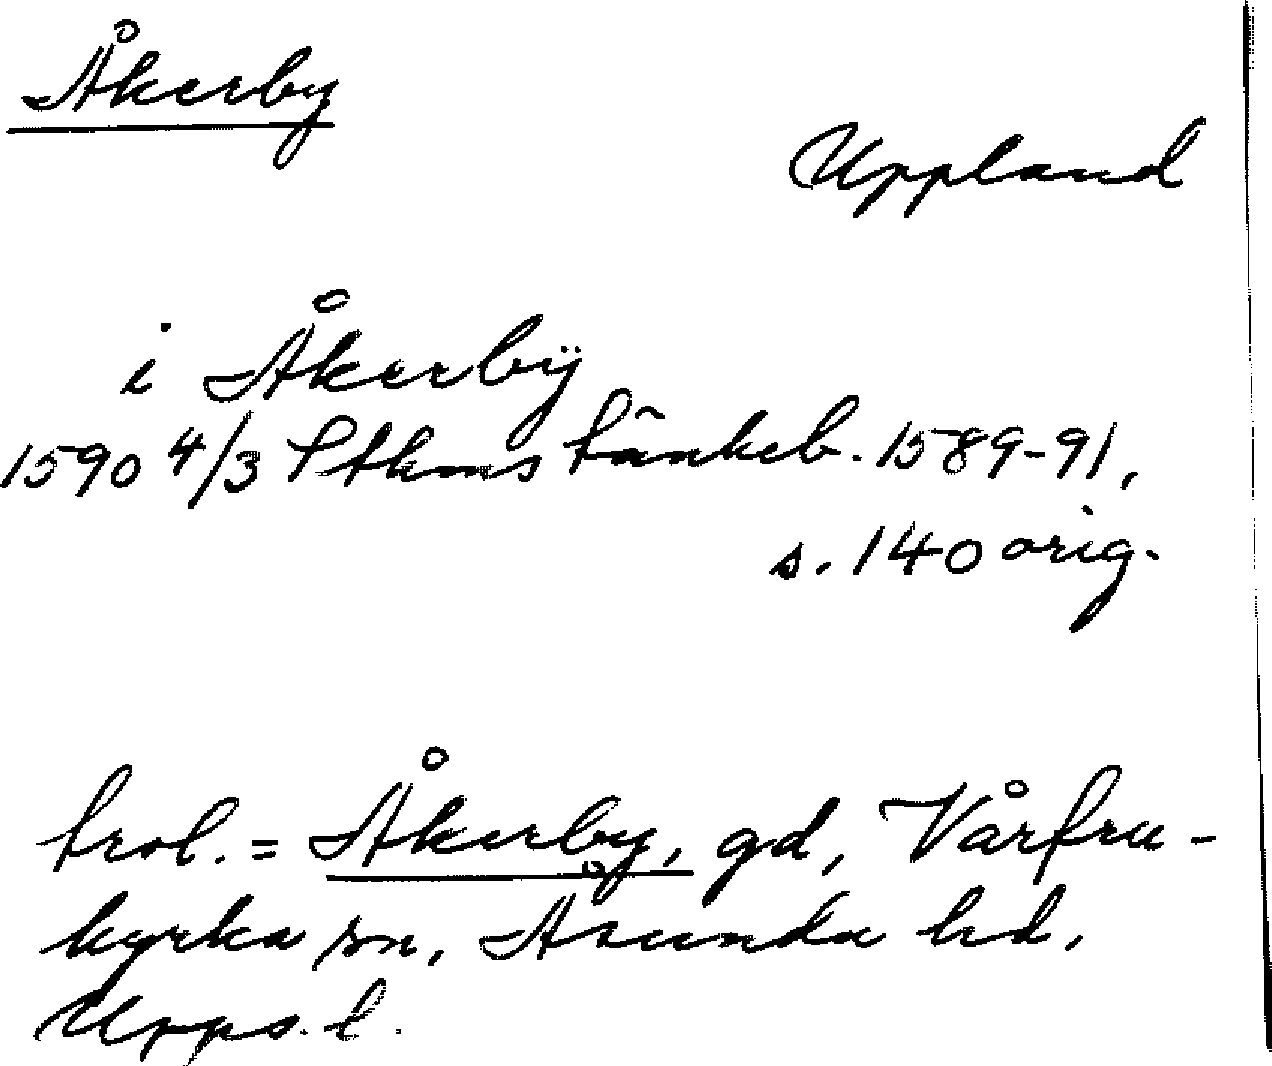 Åkerby
Uppland
i Åkerbÿ
1590 4/3 Sthms tänkeb. 1589-91,
s. 140 orig.
trol. = Åkerby, gd, Vårfru-
kyrka sn, Åsunda hd,
Upps. l.